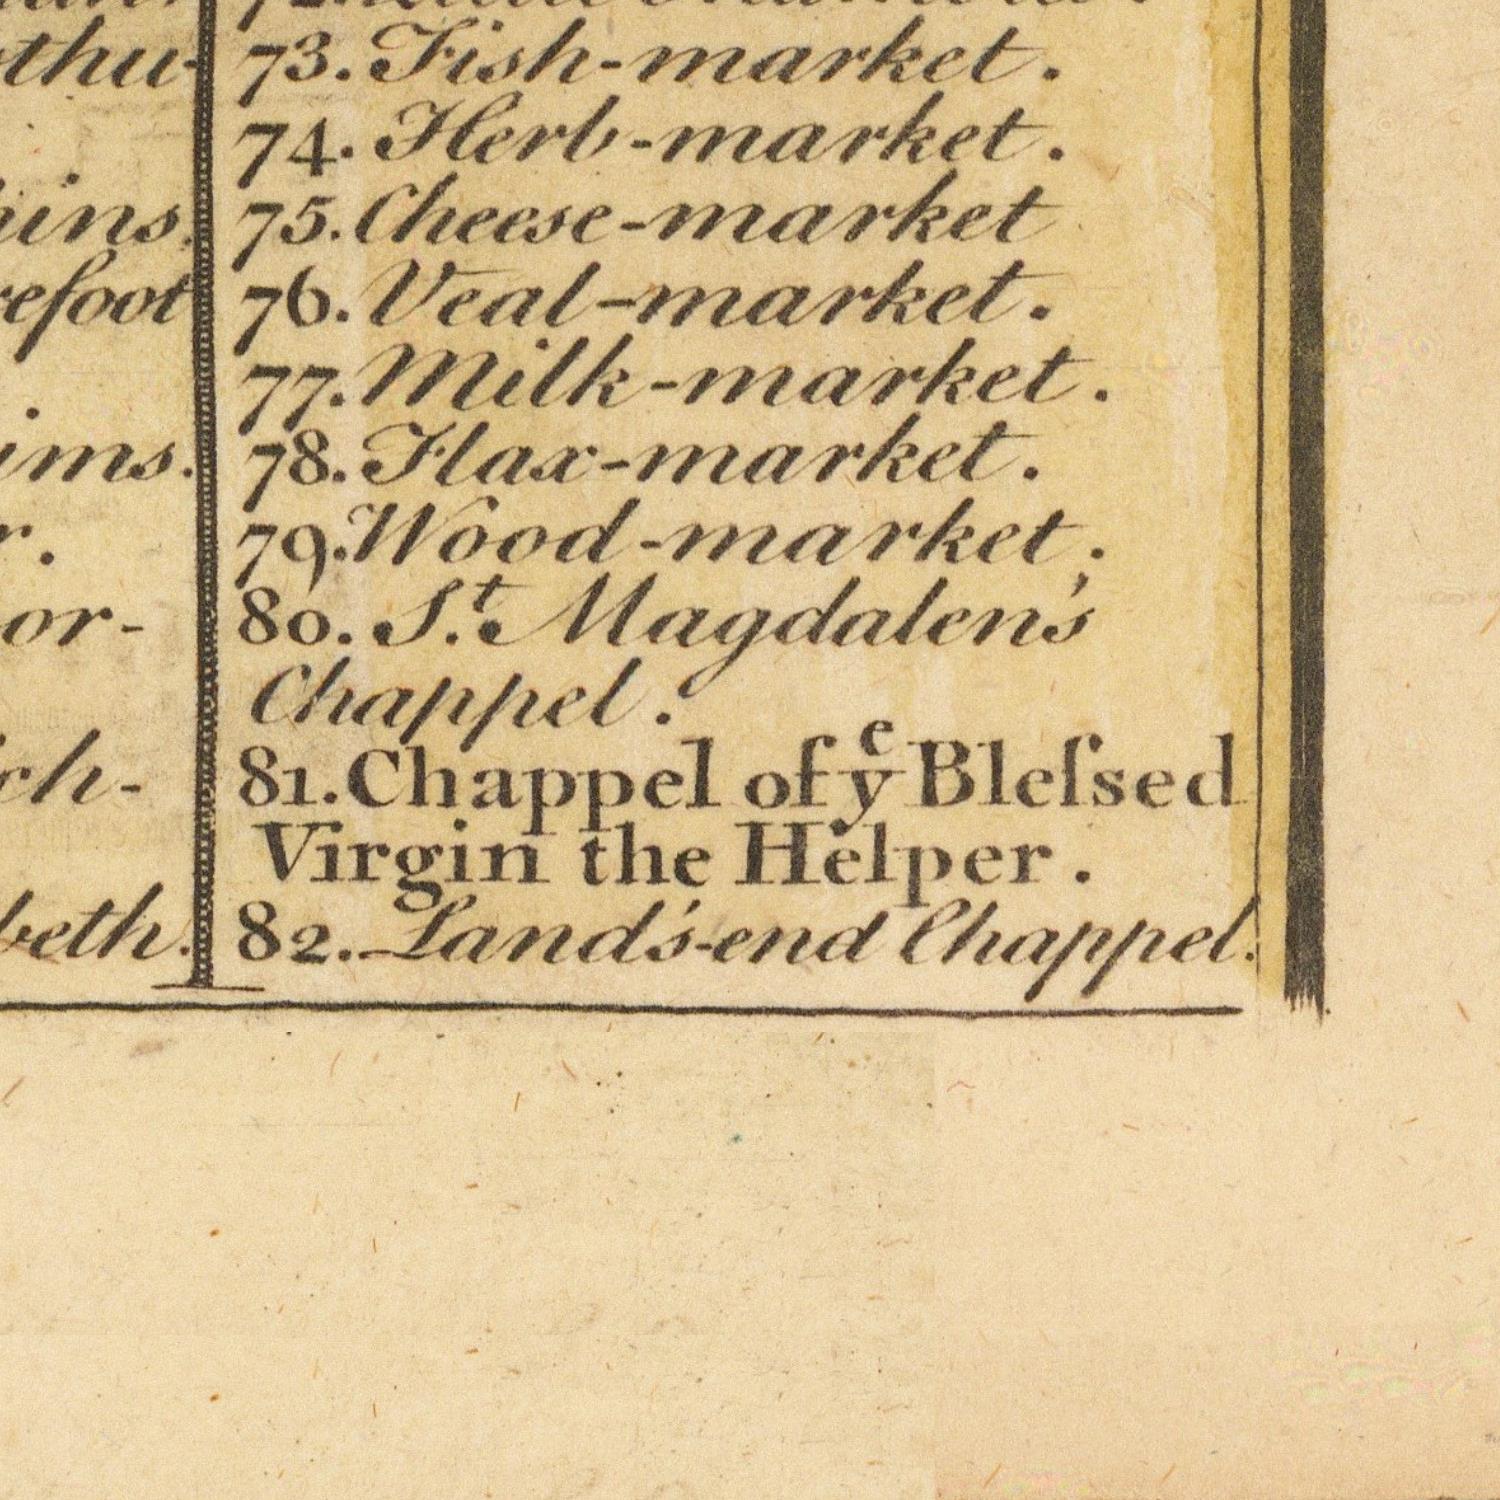 73. Fish-market.
74. Herb-market.
75. Cheese-market
76. Veal-market.
77. Milk-market.
78. Flax-market.
79. Wood-market.
80. S.t Magdalen's
Chappel.
81. Chappel of ye Bleſsed
Virgin the Helper.
82. Land's-end Chappel.